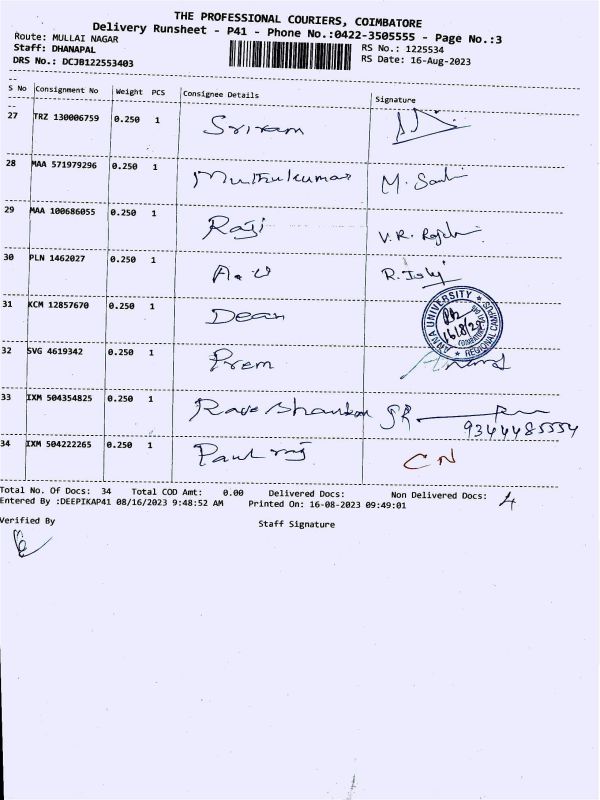 THE PROFESSIONAL COURIERS, COIMBATORE
Delivery Runsheet - P41 - Phone No.:0422-3505555 - Page No.:3
Route: MULLAI NAGAR
RS No.: 1225534
Staff: DHANAPAL
RS Date: 16-Aug-2023
DRS No.: DCJB122553403
S No Consignment No Weight PCS Consignee Details Signature
27 TRZ 130006759 0.250 1 Sriram
28 MAA 571979296 0.250 1 Muthukumar M.
29 MAA 100686055 0.250 1 Raji V.R.
30 PLN 1462027 0.250 1 A.U R.
31 KCM 12857670 0.250 1 Dean
ANNA UNIVERSITY
REGIONAL CAMPUS
16/8/23
32 SVG 4619342 0.250 1 Prem
33 IXM 504354825 0.250 1
9344485554
34 IXM 504222265 0.250 1 Paul raj CN
Total No. Of Docs: 34 Total COD Amt: 0.00 Delivered Docs: Non Delivered Docs: 4
Entered By :DEEPIKAP41 08/16/2023 9:48:52 AM Printed On: 16-08-2023 09:49:01
Verified By
Staff Signature